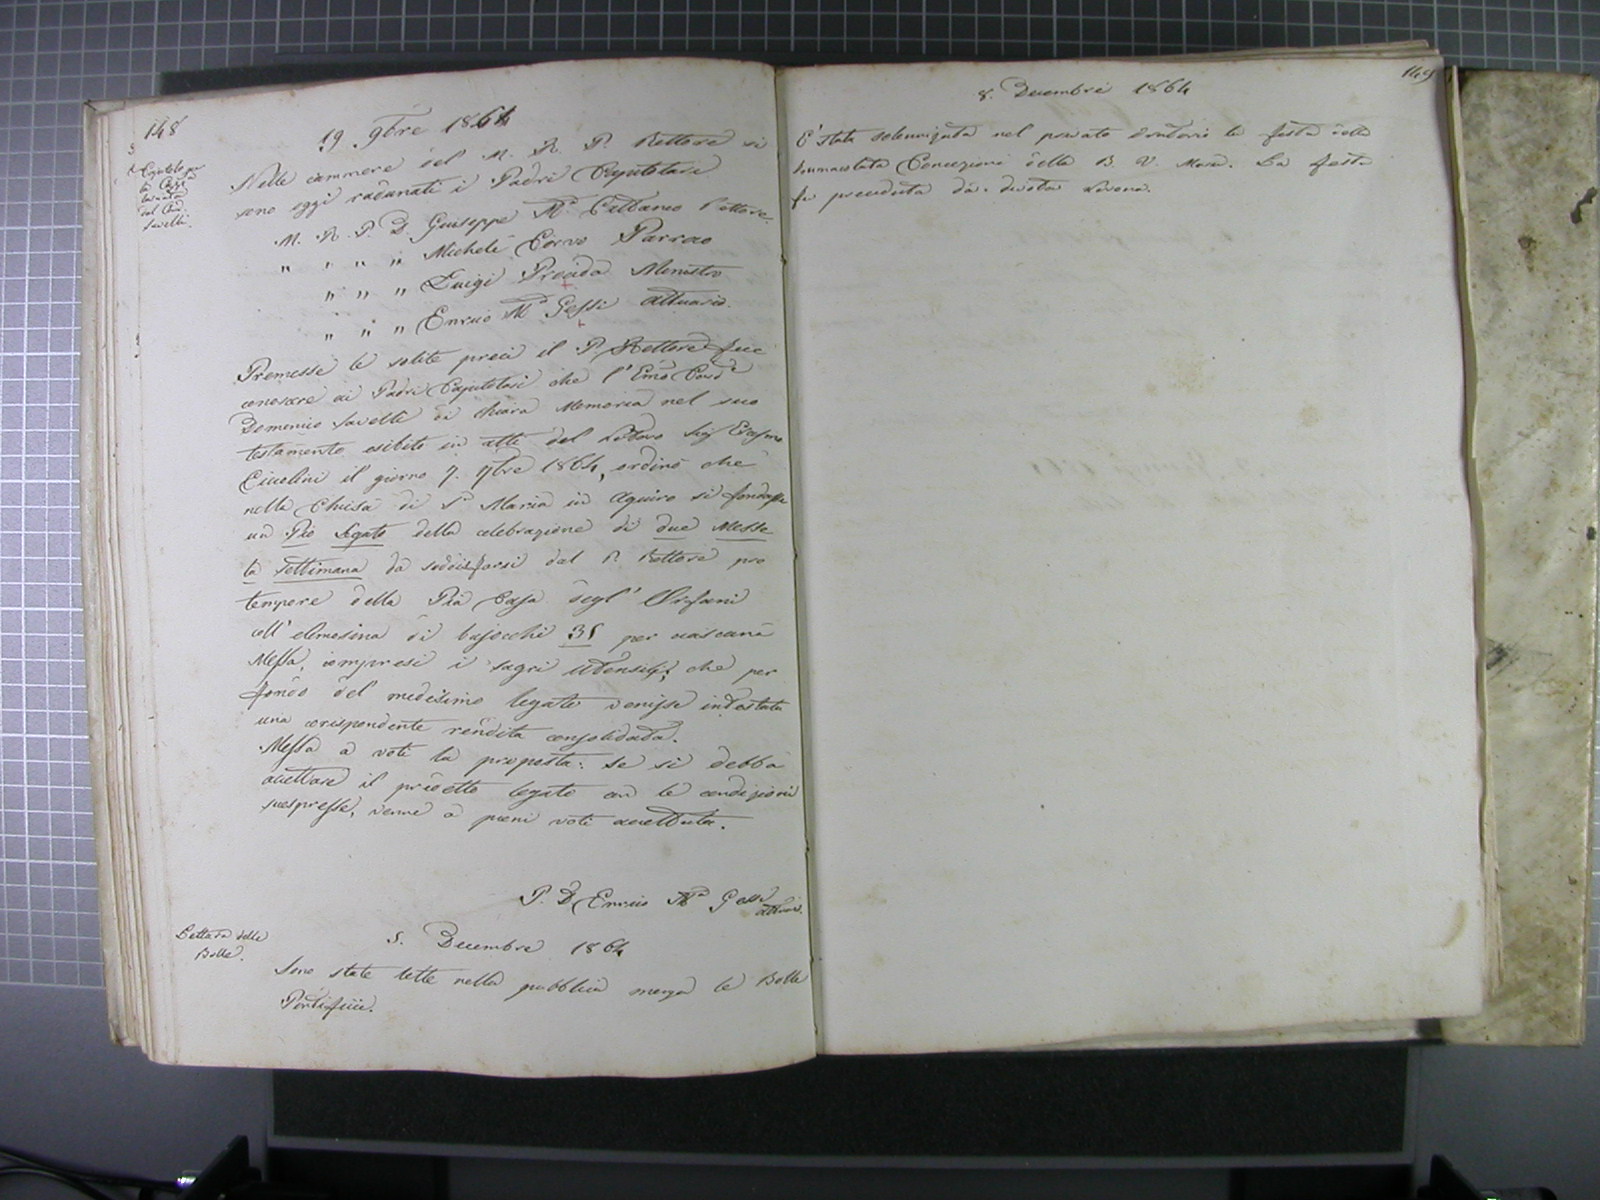 148
19 9bre 1864
Nelle camere del M. R. P. Rettore si
sono oggi radunati i Padri Capitolari
M. R. P. D. Giuseppe Mª Cattaneo Rettore
" " " " Michele Corvo Parroco
" " " Luigi Procida Ministro
" " " Enrico Mª Gessi attuario
Premesse le solite preci il P. Rettore fece
conoscere ai Padri Capitolari che l'Emo Card.e
Domenico Savelli di chiara Memoria nel suo
testamento esibito in atti del Notaro Sig.
il giorno 7. 9bre 1864, ordinò che
nella Chiesa di S. Maria in Aquiro si fondasse
un Pio Legato della celebrazione di due Messe
la settimana da soddisfarsi dal P. Rettore pro
tempore della Pia Casa degl' Orfani
coll' elemosina di bajocchi 35 per ciascuna
Messa, compresi i sagri utensilj, che per
fondo del medesimo legato venisse intestata
una corrispondente rendita consolidata.
Messa a voti la proposta: se si debba
accettare il predetto legato con le condizioni
suespresse, venne a pieni voti accettata.
P. D. Enrico Mª Gessi
attuario.
Lettura delle
Bolle.
5. Decembre 1864
Sono state lette nella pubblica mensa le Bolle
Pontificie.
149
8. Decembre 1864
E' stata solennizata nel privato Oratorio la festa della
Immacolata Concezione della B. V. Maria. La festa
fu preceduta da divota Novena.